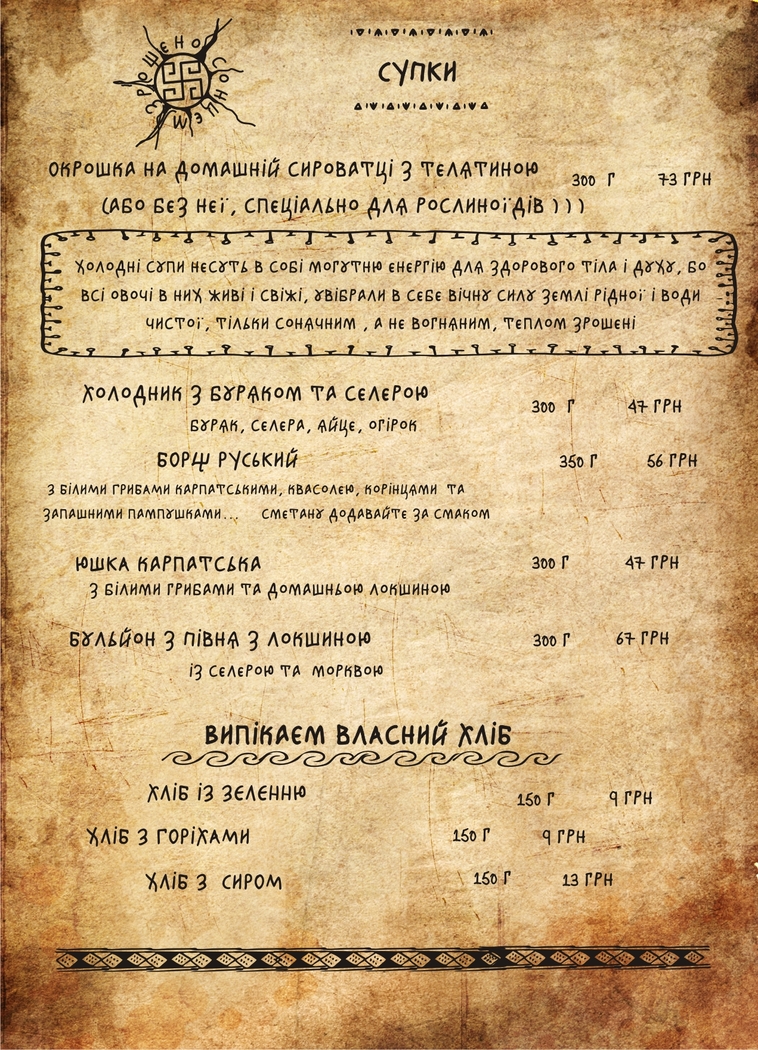 ЗРОЩЕНО СОНЦЕМ
СУПКИ
ОКРОШКА НА ДОМАШНІЙ СИРОВАТЦІ З ТЕЛЯТИНОЮ 300 Г 73 ГРН
(АБО БЕЗ НЕЇ, СПЕЦІАЛЬНО ДЛЯ РОСЛИНОЇДІВ )))
ХОЛОДНІ СУПИ НЕСУТЬ В СОБІ МОГУТНЮ ЕНЕРГІЮ ДЛЯ ЗДОРОВОГО ТІЛА І ДУХУ, БО
ВСІ ОВОЧІ В НИХ ЖИВІ І СВІЖІ, УВІБРАЛИ В СЕБЕ ВІЧНУ СИЛУ ЗЕМЛІ РІДНОЇ І ВОДИ
ЧИСТОЇ, ТІЛЬКИ СОНЯЧНИМ , А НЕ ВОГНЯНИМ, ТЕПЛОМ ЗРОШЕНІ
ХОЛОДНИК З БУРЯКОМ ТА СЕЛЕРОЮ 300 Г 47 ГРН
БУРЯК, СЕЛЕРА, ЯЙЦЕ, ОГІРОК
БОРЩ РУСЬКИЙ 350 Г 56 ГРН
З БІЛИМИ ГРИБАМИ КАРПАТСЬКИМИ, КВАСОЛЕЮ, КОРІНЦЯМИ ТА
ЗАПАШНИМИ ПАМПУШКАМИ... СМЕТАНУ ДОДАВАЙТЕ ЗА СМАКОМ
ЮШКА КАРПАТСЬКА 300 Г 47 ГРН
З БІЛИМИ ГРИБАМИ ТА ДОМАШНЬОЮ ЛОКШИНОЮ
БУЛЬЙОН З ПІВНЯ З ЛОКШИНОЮ 300 Г 67 ГРН
ІЗ СЕЛЕРОЮ ТА МОРКВОЮ
ВИПІКАЄМ ВЛАСНИЙ ХЛІБ
ХЛІБ ІЗ ЗЕЛЕННЮ 150 Г 9 ГРН
ХЛІБ З ГОРІХАМИ 150 Г 9 ГРН
ХЛІБ З СИРОМ 150 Г 13 ГРН